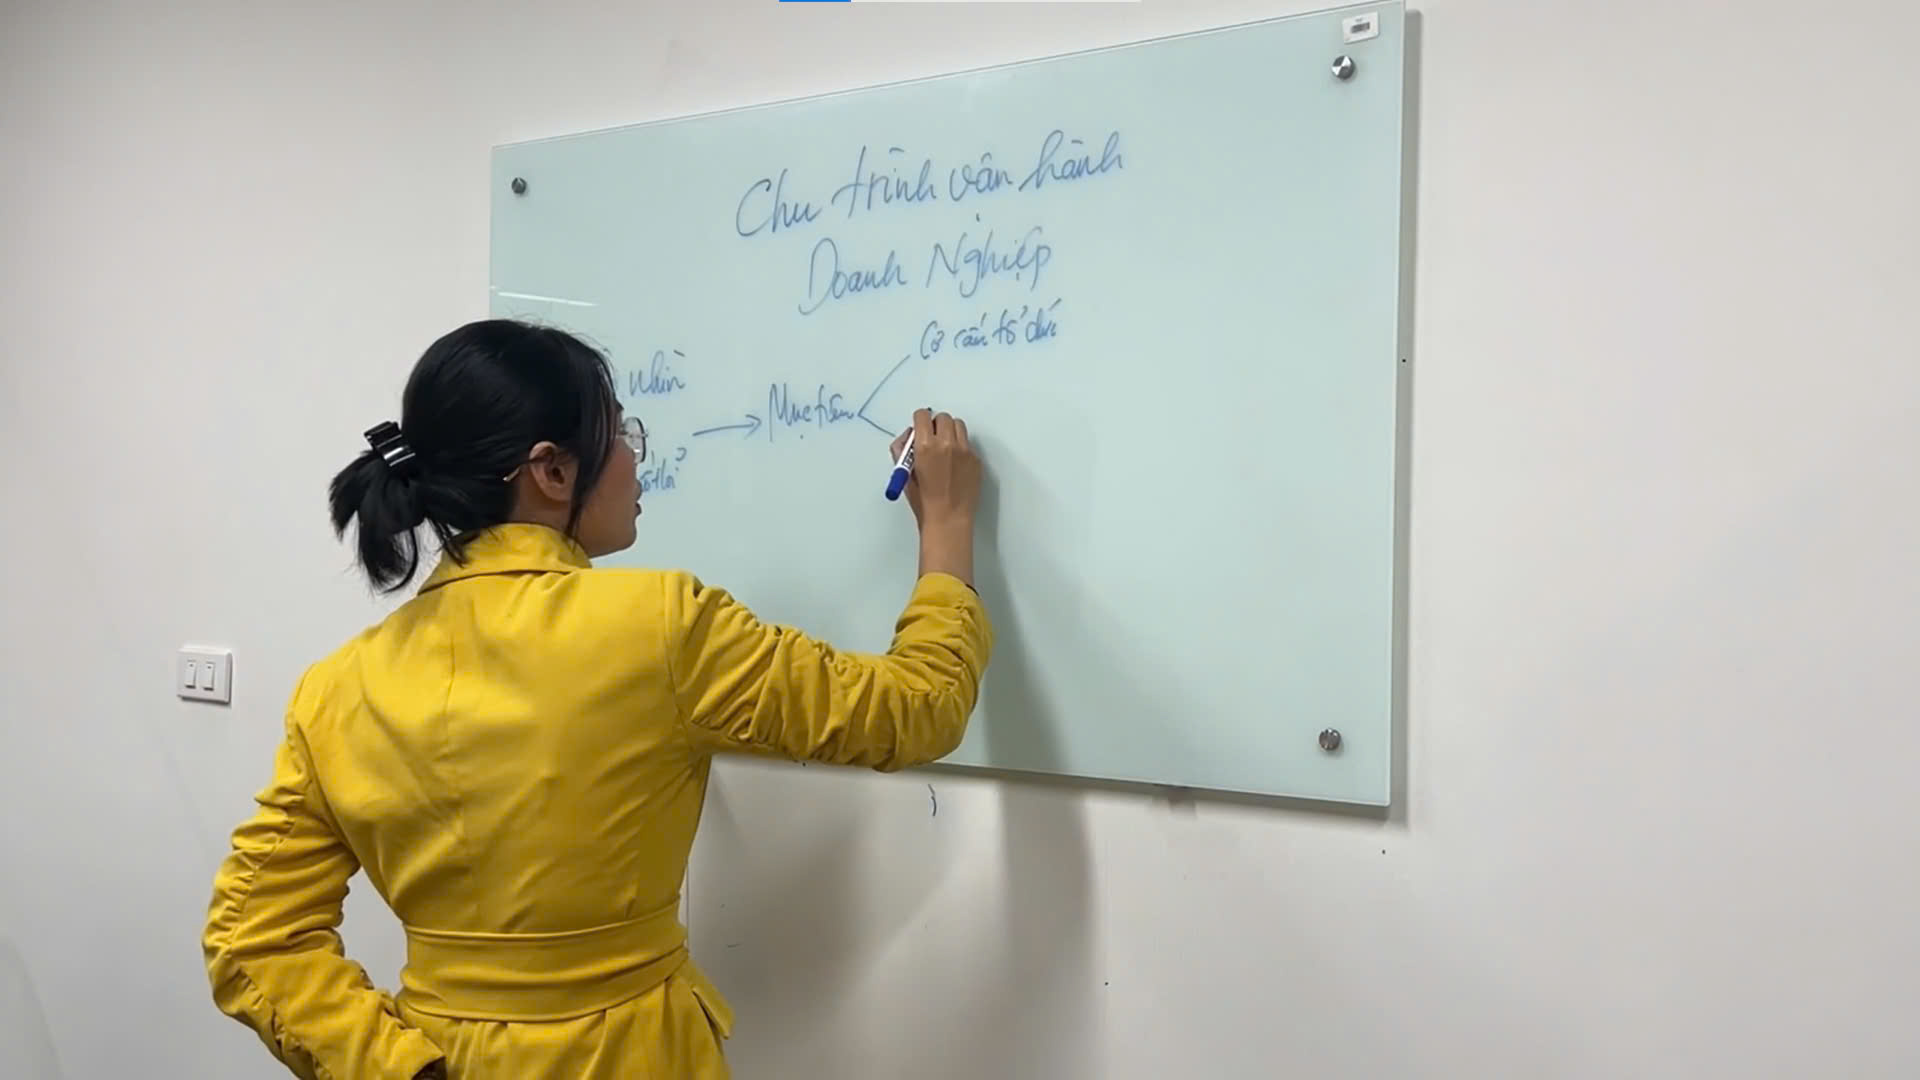 Chu trình vận hành
Doanh Nghiệp
Cơ cấu tổ chức
nhìn
Mục tiêu